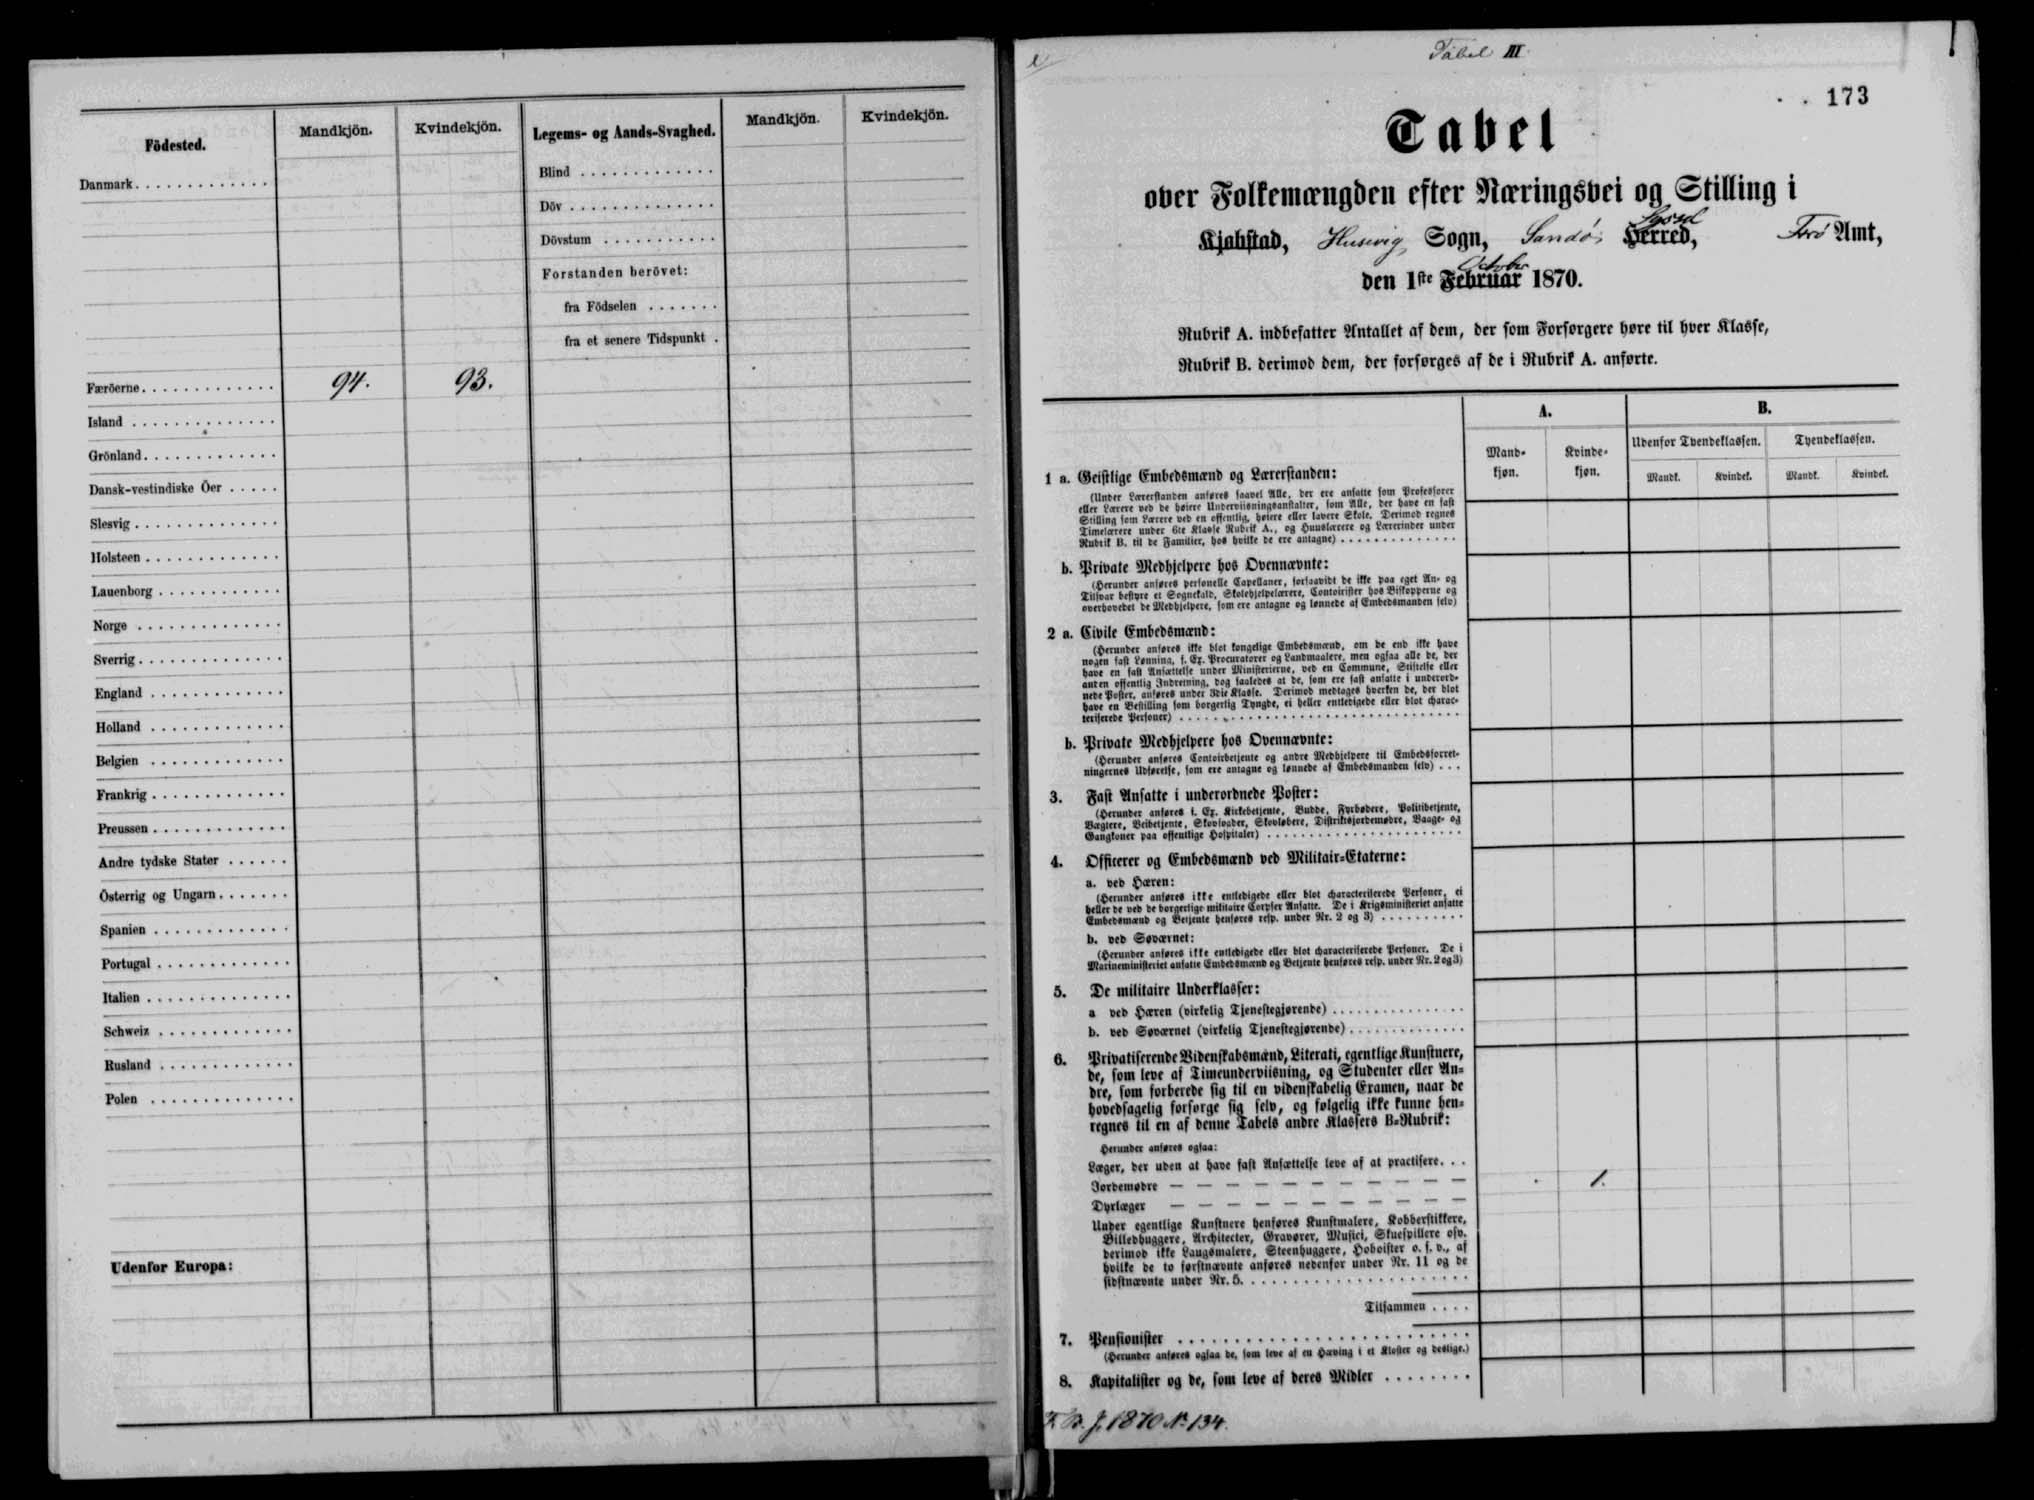 Födested.
Mandkjön.
Kvindekjön.
Legems- og Aands-Svaghed.
Mandkjön.
Kvindekjön.
Danmark
Færöerne 94. 93.
Island
Grönland
Dansk-vestindiske Öer
Slesvig
Holsteen
Lauenborg
Norge
Sverrig
England
Holland
Belgien
Frankrig
Preussen
Andre tydske Stater
Österrig og Ungarn
Spanien
Portugal
Italien
Schweiz
Rusland
Polen
Udenfor Europa:
Blind
Döv
Dövstum
Forstanden berövet:
fra Födselen
fra et senere Tidspunkt
Tabel III
173
Tabel
over Folkemængden efter Næringsvei og Stilling i
Syssel
Kjøbstad, Husevig Sogn, Sandø Herred, Færø Amt,
October
den 1ste Februar 1870.
Rubrik A. indbefatter Antallet af dem, der som Forsørgere høre til hver Klasse,
Rubrik B. derimod dem, der forsørges af de i Rubrik A. anførte.
A. B.
Mand-
kjøn.
Kvinde-
kjøn.
Udenfor Tyendeklassen. Tyendeklassen.
Mandk. Kvindek. Mandk. Kvindek.
1 a. Geistlige Embedsmænd og Lærerstanden:
(Under Lærerstanden anføres saavel Alle, der ere ansatte som Professorer
eller Lærere ved de høiere Underviisningsanstalter, som Alle, der have en fast
Stilling som Lærere ved en offentlig, høiere eller lavere Skole. Derimod regnes
Timelærere under 6te Klasse Rubrik A., og Huuslærere og Lærerinder under
Rubrik B. til de Familier, hos hvilke de ere antagne)
b. Private Medhjelpere hos Ovennævnte:
(Herunder anføres personelle Capellaner, forsaavidt de ikke paa eget An- og
Tilsvar bestyre et Sognekald, Skolehjelpelærere, Contoirister hos Biskopperne og
overhovedet de Medhjelpere, som ere antagne og lønnede af Embedsmanden selv)
2 a. Civile Embedsmænd:
(Herunder anføres ikke blot kongelige Embedsmænd, om de end ikke have
nogen fast Lønning, f. Ex. Procuratorer og Landmaalere, men ogsaa alle de, der
have en fast Ansættelse under Ministerierne, ved en Commune, Stiftelse eller
anden offentlig Indretning, dog saaledes at de, som ere fast ansatte i underord-
nede Poster, anføres under 3die Klasse. Derimod medtages hverken de, der blot
have en Bestilling som borgerlig Tyngde, ei heller entledigede eller blot charac-
teriserede Personer)
b. Private Medhjelpere hos Ovennævnte:
(Herunder anføres Contoirbetjente og andre Medhjelpere til Embedsforret-
ningernes Udførelse, som ere antagne og lønnede af Embedsmanden selv)
3. Fast Ansatte i underordnede Poster:
(Herunder anføres f. Ex. Kirkebetjente, Budde, Fyrbødere, Politibetjente,
Vægtere, Veibetjente, Skovfogder, Skovløbere, Distriktsjordemødre, Vaage- og
Gangkoner paa offentlige Hospitaler)
4. Officerer og Embedsmænd ved Militair-Etaterne:
a. ved Hæren:
(Herunder anføres ikke entledigede eller blot characteriserede Personer, ei
heller de ved de borgerlige militaire Corpser Ansatte. De i Krigsministeriet ansatte
Embedsmænd og Betjente henføres resp. under Nr. 2 og 3)
b. ved Søværnet:
(Herunder anføres ikke entledigede eller blot characteriserede Personer. De i
Marineministeriet ansatte Embedsmænd og Betjente henføres resp. under Nr. 2 og 3)
5. De militaire Underklasser:
a ved Hæren (virkelig Tjenestegjørende)
b. ved Søværnet (virkelig Tjenestegjørende)
6. Privatiserende Videnskabsmænd, Literati, egentlige Kunstnere,
de, som leve af Timeunderviisning, og Studenter eller An-
dre, som forberede sig til en videnskabelig Examen, naar de
hovedsagelig forsørge sig selv, og følgelig ikke kunne hen-
regnes til en af denne Tabels andre Klassers B-Rubrik:
Herunder anføres ogsaa:
Læger, der uden at have fast Ansættelse leve af at practisere.
Jordemødre — — — — — — — — — — 1.
Dyrlæger — — — — — — — — — —
Under egentlige Kunstnere henføres Kunstmalere, Kobberstikkere,
Billedhuggere, Architecter, Gravører, Musici, Skuespillere osv.
derimod ikke Laugsmalere, Steenhuggere, Hoboister o. s. v., af
hvilke de to førstnævnte anføres nedenfor under Nr. 11 og de
sidstnævnte under Nr. 5.
Tilsammen
7. Pensionister
(Herunder anføres ogsaa de, som leve af en Hæving i et Kloster og deslige.)
8. Kapitalister og de, som leve af deres Midler
F. B. J. 1870 No 134.